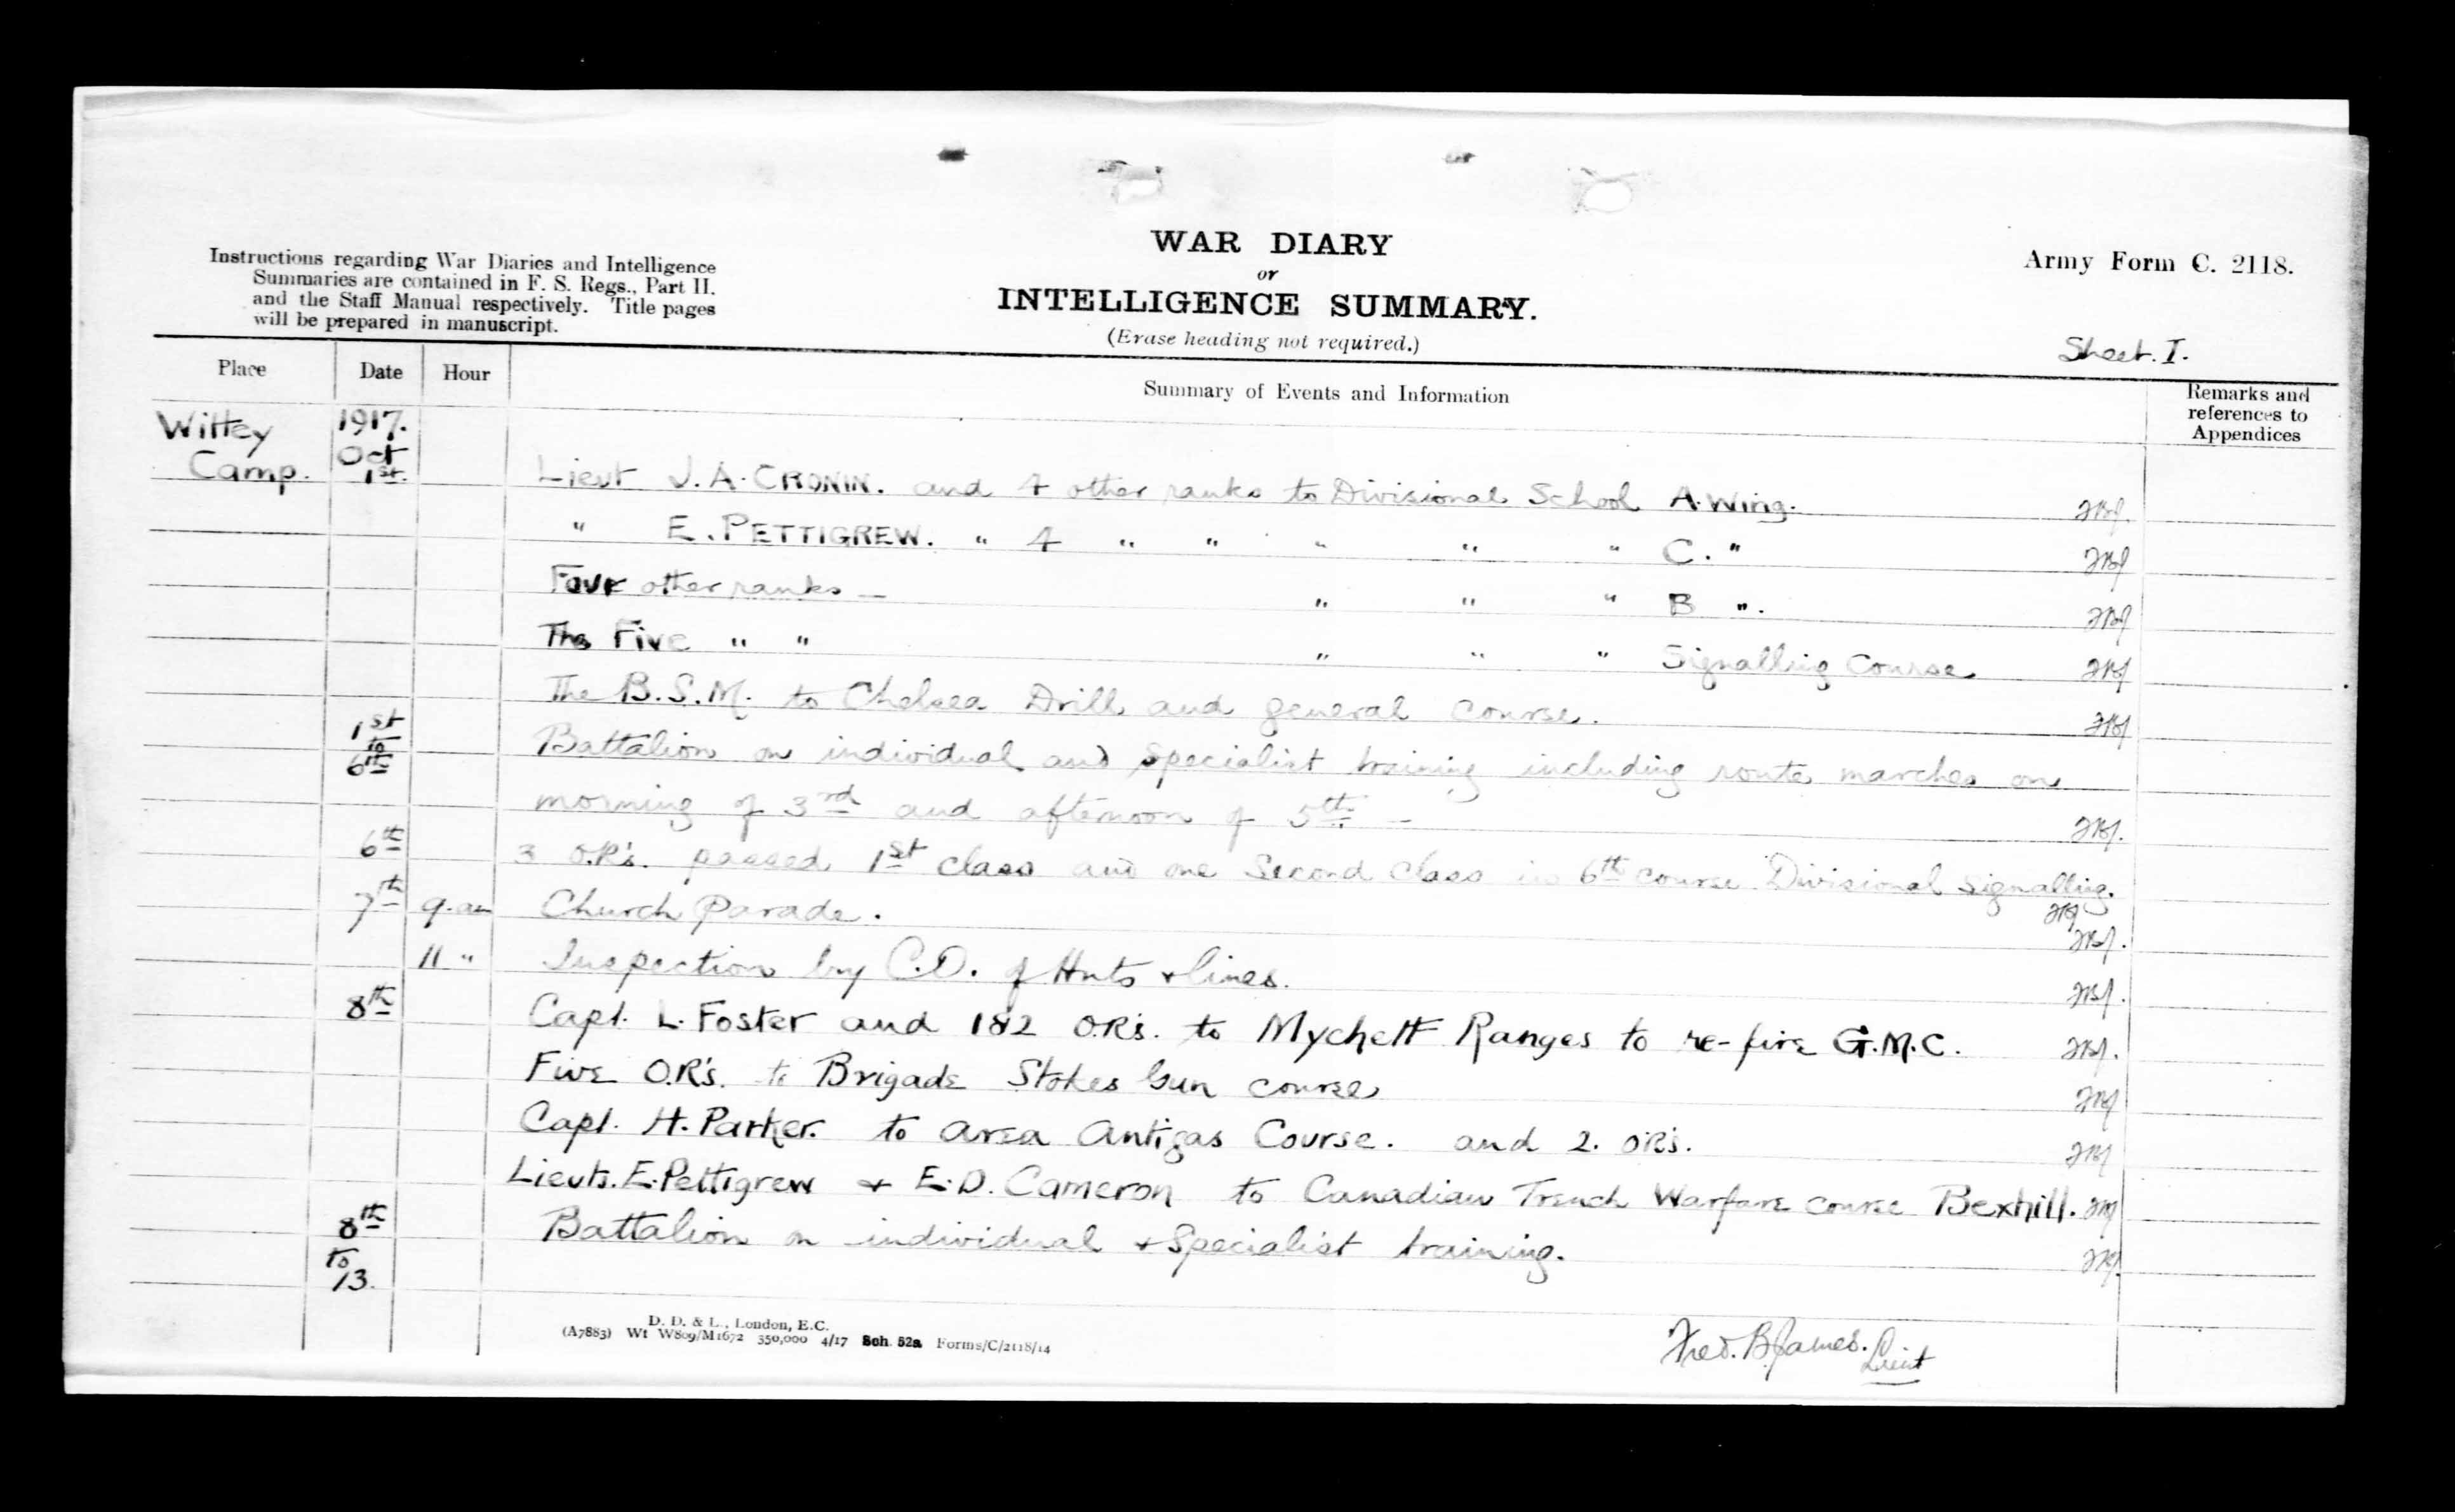 WAR DIARY
or
INTELLIGENCE SUMMARY.
(Erase heading not required.)
Instructions regarding War Diaries and Intelligence
Summaries are contained in F. S. Regs., Part II.
and the Staff Manual respectively. Title pages
will be prepared in manuscript.
Army Form C. 2118.
Sheet. I.
Place Date Hour Summary of Events and Information Remarks and references to Appendices
Witley 1917.
Camp. Oct
1st. Lieut J.A. CRONIN. and 4 other ranks to Divisional School A. Wing.
" E. PETTIGREW. " 4 " " " " " C. "
Four other ranks — " " " B ".
Five " " " " " Signalling Course
The B.S.M. to Chelsea Drill and general course.
1st to 6th Battalion on individual and specialist training including route marches on
morning of 3rd and afternoon of 5th —
6th 3 O.R's. passed 1st class and one Second Class in 6th course Divisional Signalling.
7th 9. am Church Parade.
11 " Inspection by C.O. of Huts + lines.
8th Capt. L. Foster and 182 O.R's. to Mychett Ranges to re-fire G.M.C.
Five O.R's. to Brigade Stokes Gun course
Capt. H. Parker. to Area Antigas Course. and 2. O.R's.
Lieuts. E. Pettigrew + E.D. Cameron to Canadian Trench Warfare course Bexhill.
8th to 13. Battalion on individual + Specialist training.
Fred. B. James. Lieut
D. D. & L., London, E.C.
(A7883) Wt W809/M1672 350,000 4/17 Sch. 52a Forms/C/2118/14